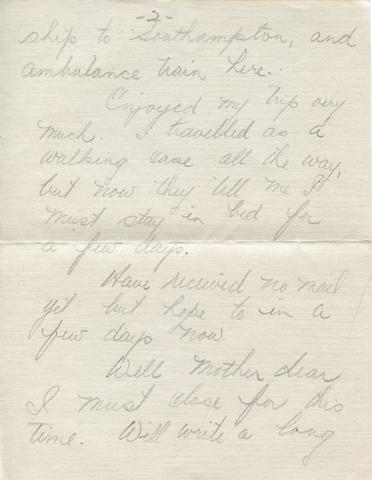 -2-
ship to Southampton, and
ambulance train here.
Enjoyed my trip very
much. I travelled as a
walking case all the way,
but now they tell me I
must stay in bed for
a few days.
Have received no mail
yet but hope to in a
few days now.
Well Mother dear
I must close for this
time. Will write a long